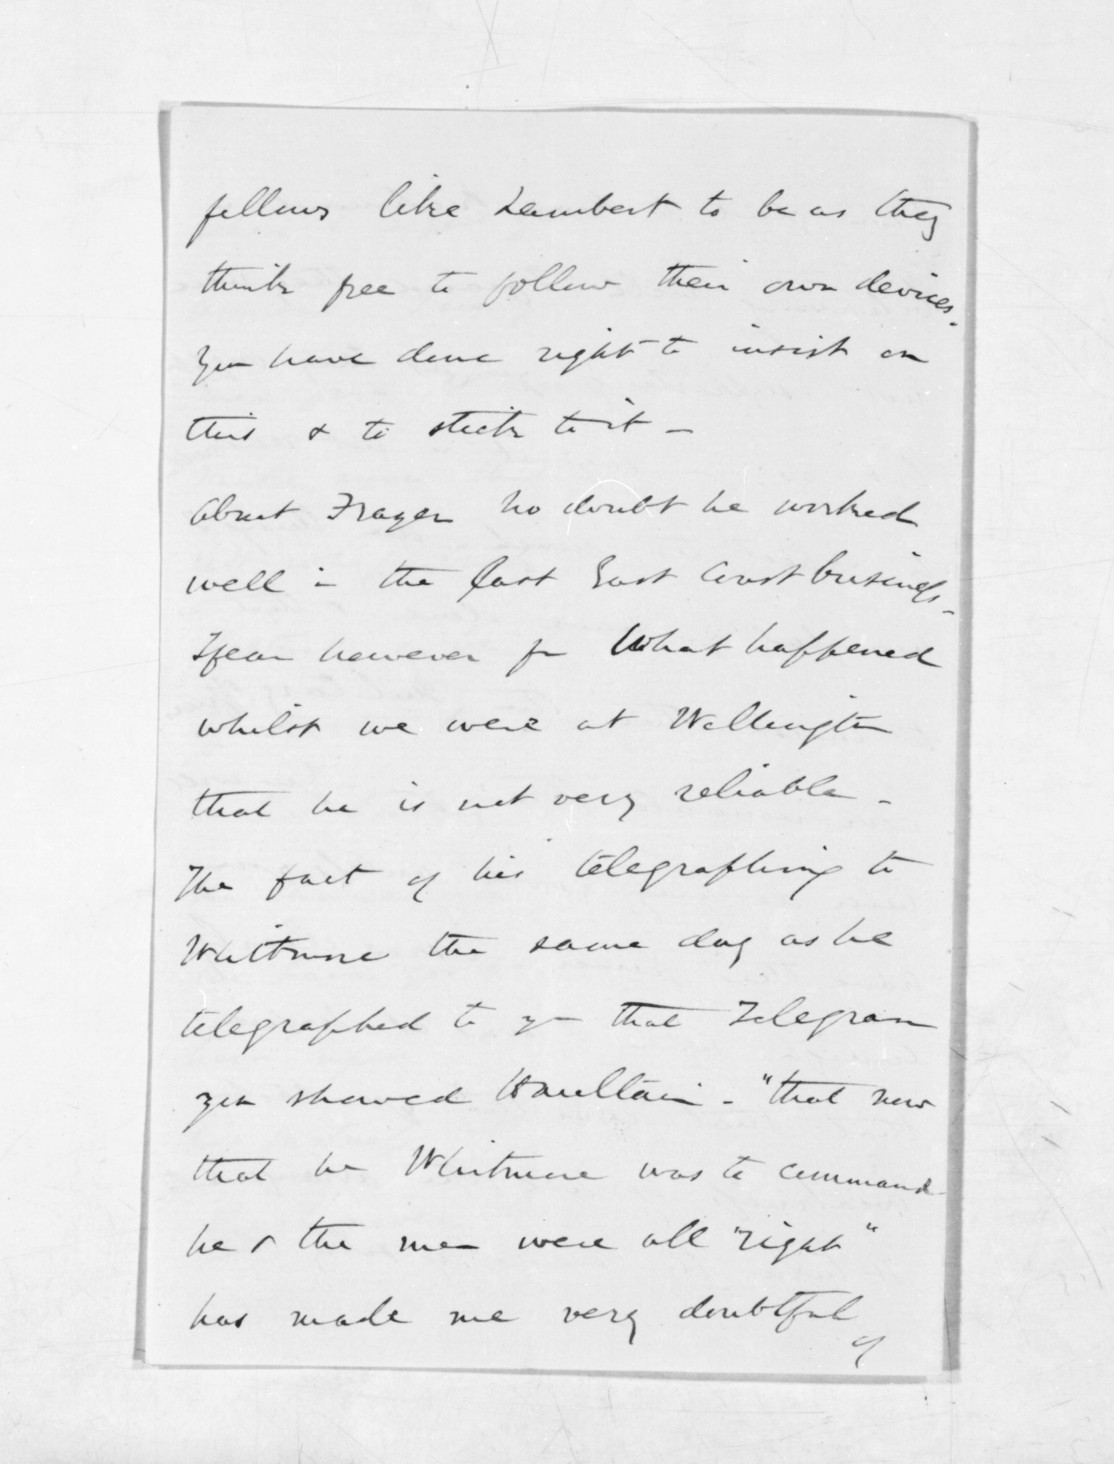 fellows like Lambert to be as they
think free to follow their own devices.
You have done right to insist on
this & to stick to it -
About Frazer no doubt he worked
well in the last East Coast business -
I fear however fr What happened
whilst we were at Wellington
that he is not very reliable -
The fact of his telegraphing to
Whitmore the same day as he
telegraphed to you that Telegram
you showed Haultain - "that now
that he Whitmore was to command
he & the men were all right"
has made me very doubtful
of